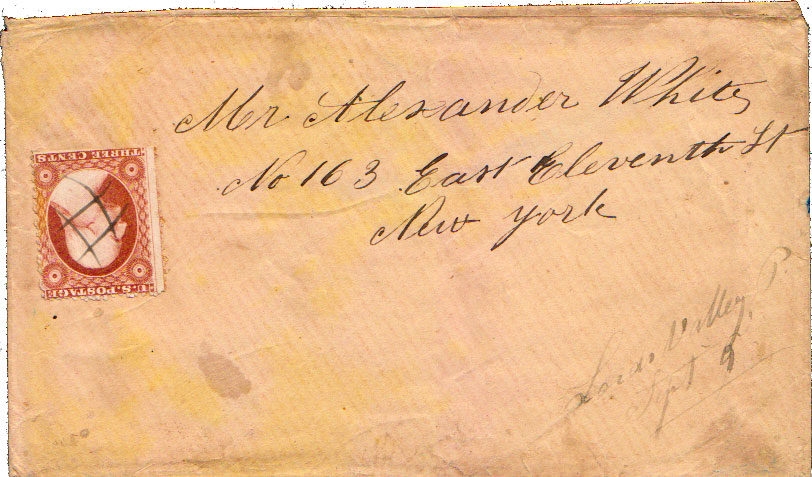 Mr Alexander White
No 163 East Eleventh St
New York
THREE CENTS
U.S. POSTAGE
Lords Valley P
Sept 9